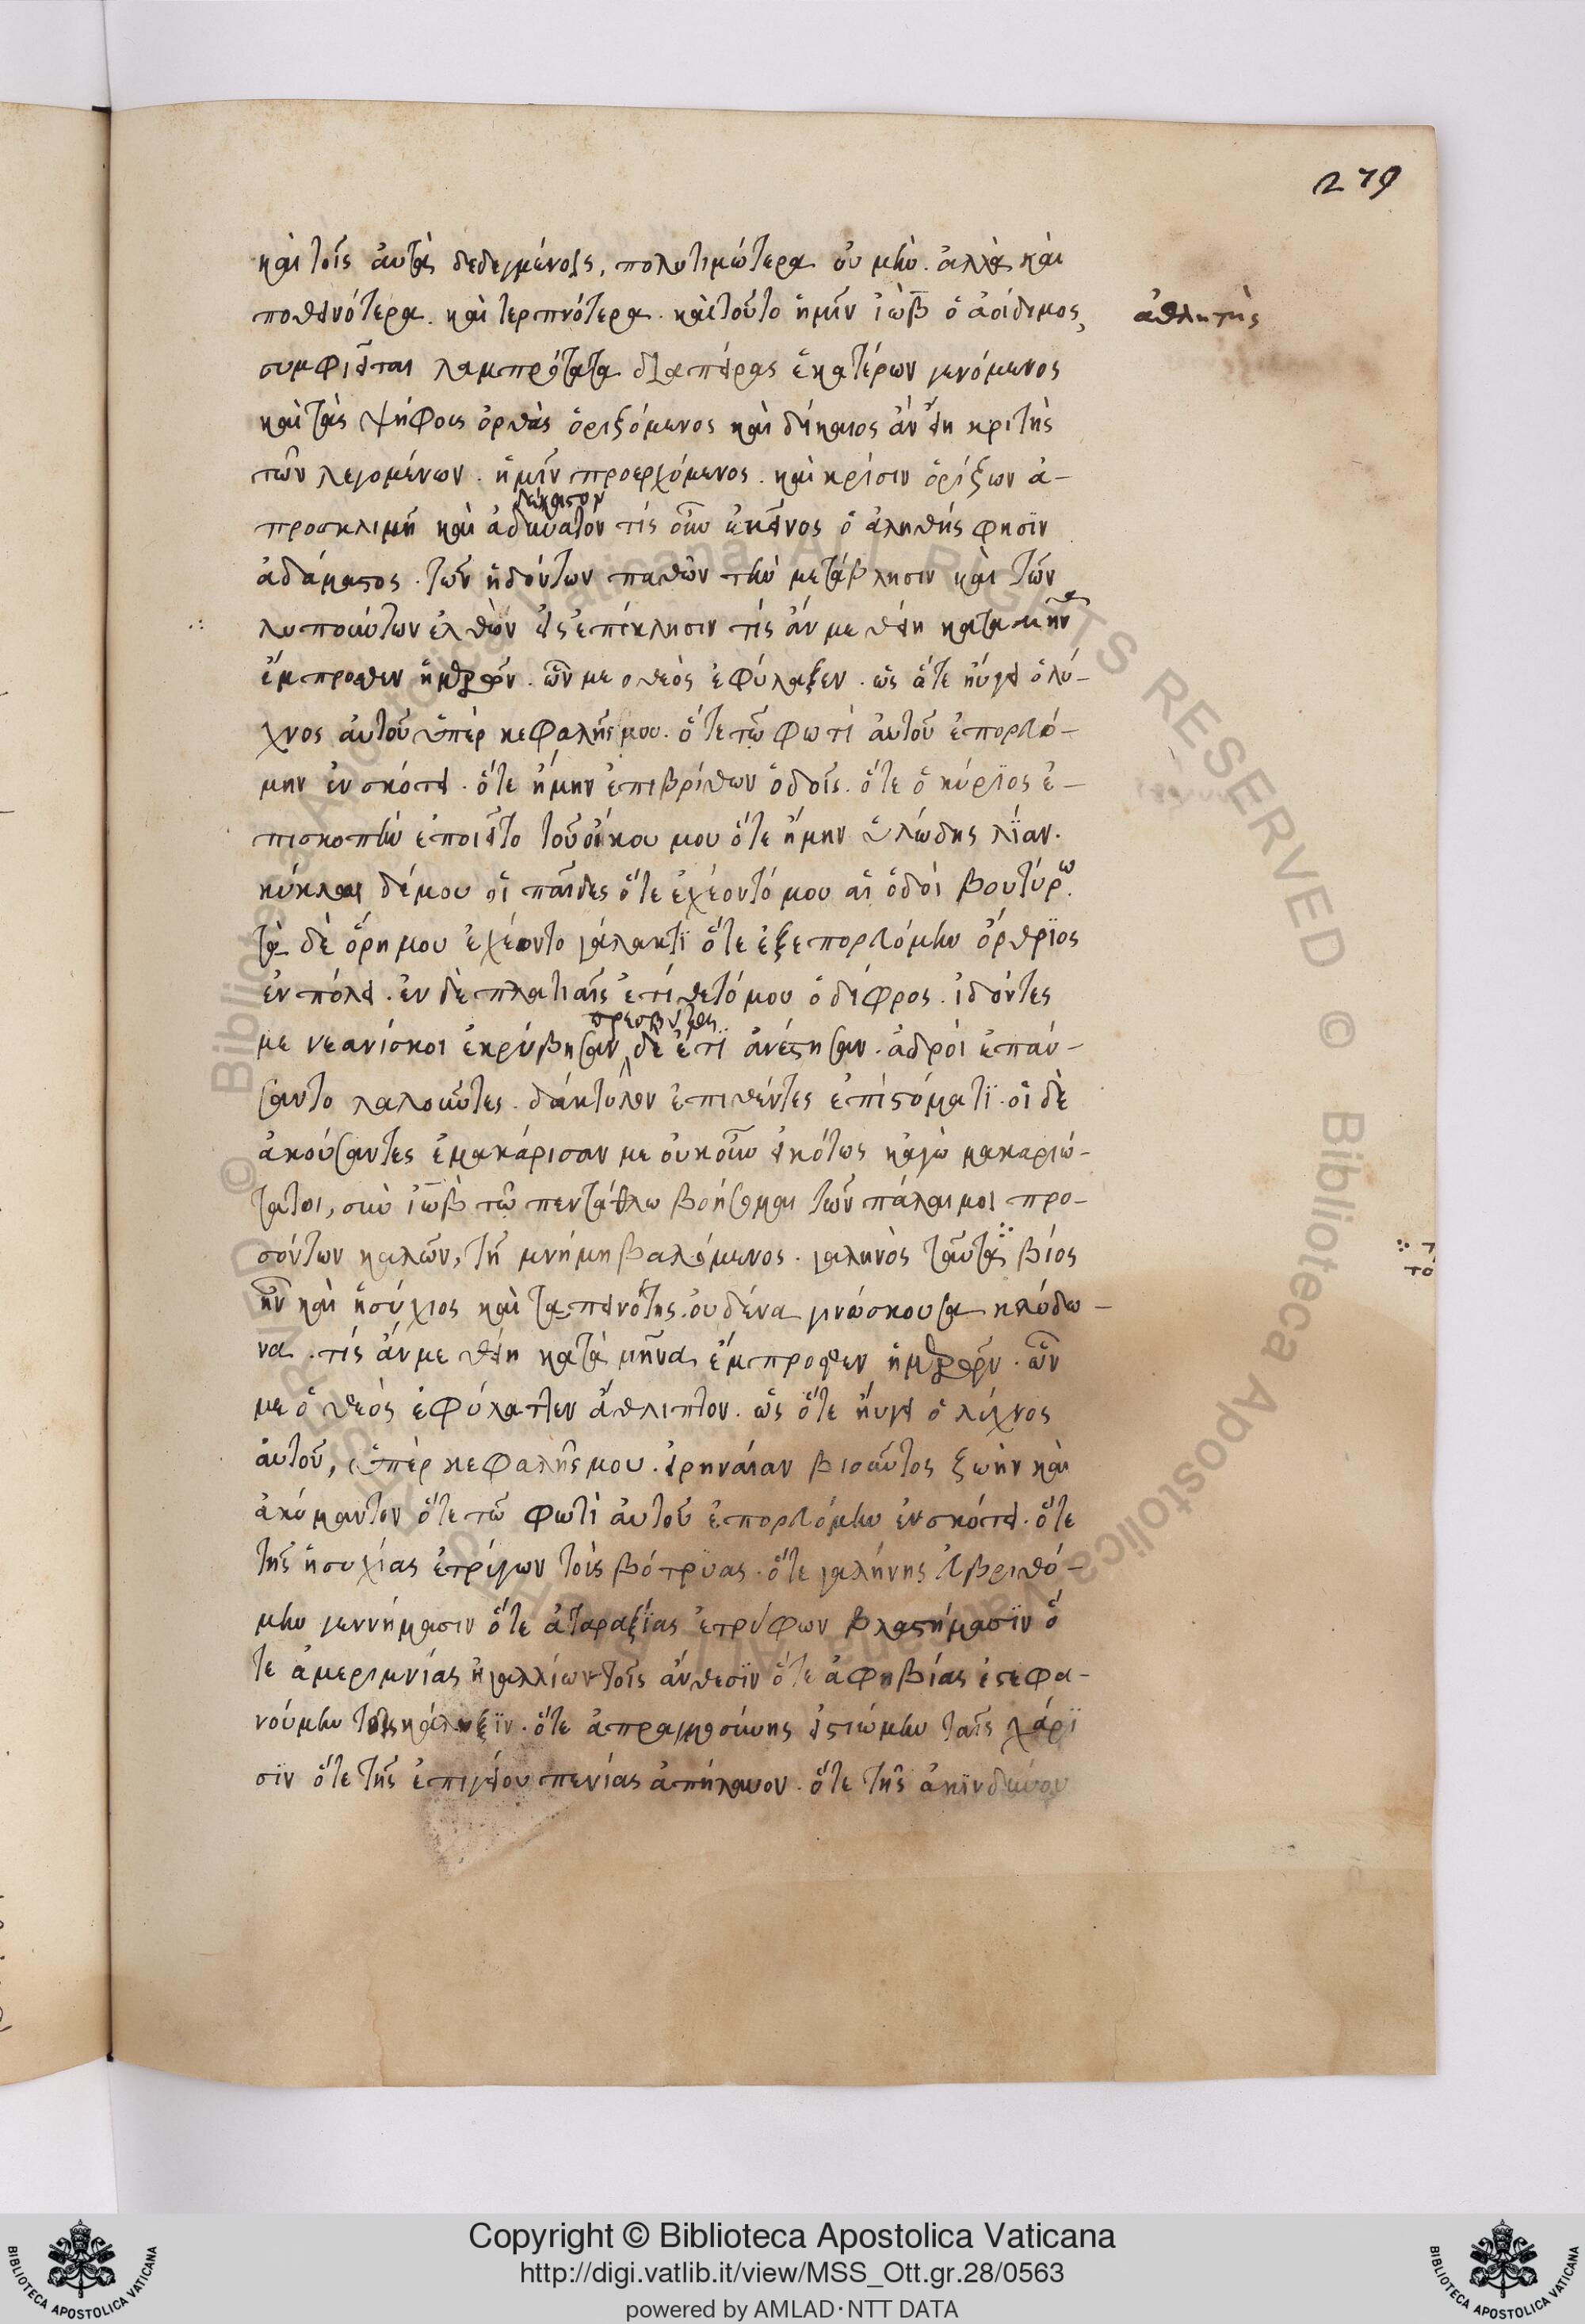 279
καὶ τοῖς αὐτὰς δεδεγμένοις, πολυτιμώτερα οὐ μὴν. ἀλλὰ καὶ
ποθεινότερα. καὶ τερπνότερα. καὶ τοῦτο ἡμῖν ἰὼβ ὁ ἀοίδιμος,
ἀθλητὴς
συμφιεῖται λαμπρότατα διαπείρας ἑκατέρων γενόμενος
καὶ τὰς ψήφους ὀρθὰς ὁριζόμενος καὶ δίκαιος ἂν εἴη κριτὴς
τῶν λεγομένων. ἡμῖν προερχόμενος. καὶ κρίσιν ὁρίζων ἀ-
δέκαστον
προσκλιμῆ καὶ ἀδύνατον τίς οὖν ἐκεῖνος ὁ ἀληθής φησὶν
ἀδάμαστος. τῶν ἡδόντων παθῶν τὴν μετάβλησιν καὶ τῶν
λυπούντων ἐλθὼν εἰς ἐπίκλησιν τίς ἄν με θείη κατα μῆνα
ἔμπροσθεν ἡμερῶν. ὧν με ο θεὸς ἐφύλαξεν. ὡς ὅτε ηὔγει ὁ λύ-
χνος αὐτοῦ ὑπὲρ κεφαλῆς μου. ὅτε τῶ φωτὶ αὐτοῦ ἐπορευό-
μην ἐν σκότει. ὅτε ἤμην ἐπιβρίθων ὁδοῖς. ὅτε ὁ κύριος ἐ-
πισκοπὴν ἐποιεῖτο τοῦ οἴκου μου ὅτε ἤμην ὑλώδης λίαν.
κύκλω δέ μου οἱ παῖδες ὅτε ἐχέοντό μου αἱ ὁδοὶ βουτύρω.
τὰ δὲ ὄρη μου ἐχέοντο γάλακτι ὅτε ἐξεπορευόμην ὄρθριος
ἐν πόλει. ἐν δὲ πλατείαις ἐτίθετό μου ὁ δίφρος. ἰδόντες
πρεσβύται
με νεανίσκοι ἐκρύβησαν δε ἔτι ἀνέστησαν. ἁδροὶ ἐπαύ-
σαντο λαλοῦντες. δάκτυλον ἐπιθέντες ἐπὶ στόματι. οἱ δὲ
ἀκούσαντες ἐμακάρισαν με οὐκοῦν εἰκότως κἀγὼ μακαριώ-
τατοι, σὺν ἰὼβ τῶ πεντάθλω βοήσομαι τῶν πάλαι μοι προ-
σόντων καλῶν, τῇ μνήμη βαλόμενος. γαληνὸς ταῦτα βίος
ἦν καὶ ἡσύχιος καὶ ταπεινότης. οὐδένα γινώσκουσα κλύδω-
να. τίς ἄν με θείη κατὰ μῆνα ἔμπροσθεν ἡμερῶν. ὧν
με ὁ θεὸς ἐφύλαττεν ἄθλιπτον. ὡς ὅτε ηὔγει ὁ λύχνος
αὐτοῦ, ὑπὲρ κεφαλῆς μου. εἰρηναίαν βιοῦντος ζωὴν καὶ
ἀκύμαντον ὅτε τῶ φωτὶ αὐτοῦ ἐπορευόμην ἐν σκότει. ὅτε
τῆς ἡσυχίας ἐτρύγων τοὺς βότρυας. ὅτε γαλήνης ἐβριθό-
μην γεννήμασιν ὅτε ἀταραξίας ἐτρύφων βλαστήμασιν ὅ
τε ἀμεριμνίας ἠγαλλίων τοῖς ἄνθεσιν ὅτε ἀφηβίας ἐστεφα-
νούμην τοῖς κάλυξιν. ὅτε ἀπραγμοσύνης εἱστιώμην ταῖς χάρι
σιν ὅτε τῆς ἐπιγείου πενίας ἀπήλαυον. ὅτε τῆς ἀκινδύνου
© Biblioteca Apostolica Vaticana ALL RIGHTS RESERVED
© Biblioteca Apostolica Vaticana ALL RIGHTS RESERVED
Copyright © Biblioteca Apostolica Vaticana
http://digi.vatlib.it/view/MSS_Ott.gr.28/0563
powered by AMLAD·NTT DATA
BIBLIOTECA APOSTOLICA VATICANA
BIBLIOTECA APOSTOLICA VATICANA